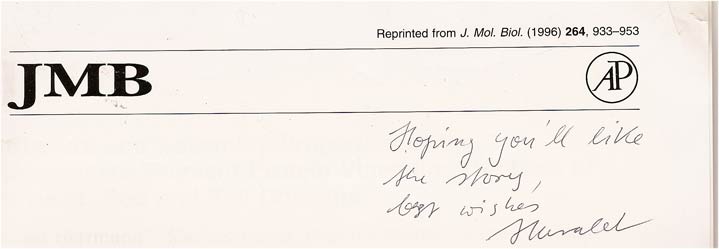 Reprinted from J. Mol. Biol. (1996) 264, 933–953
JMB
AP
Hoping you'll like
the story,
best wishes